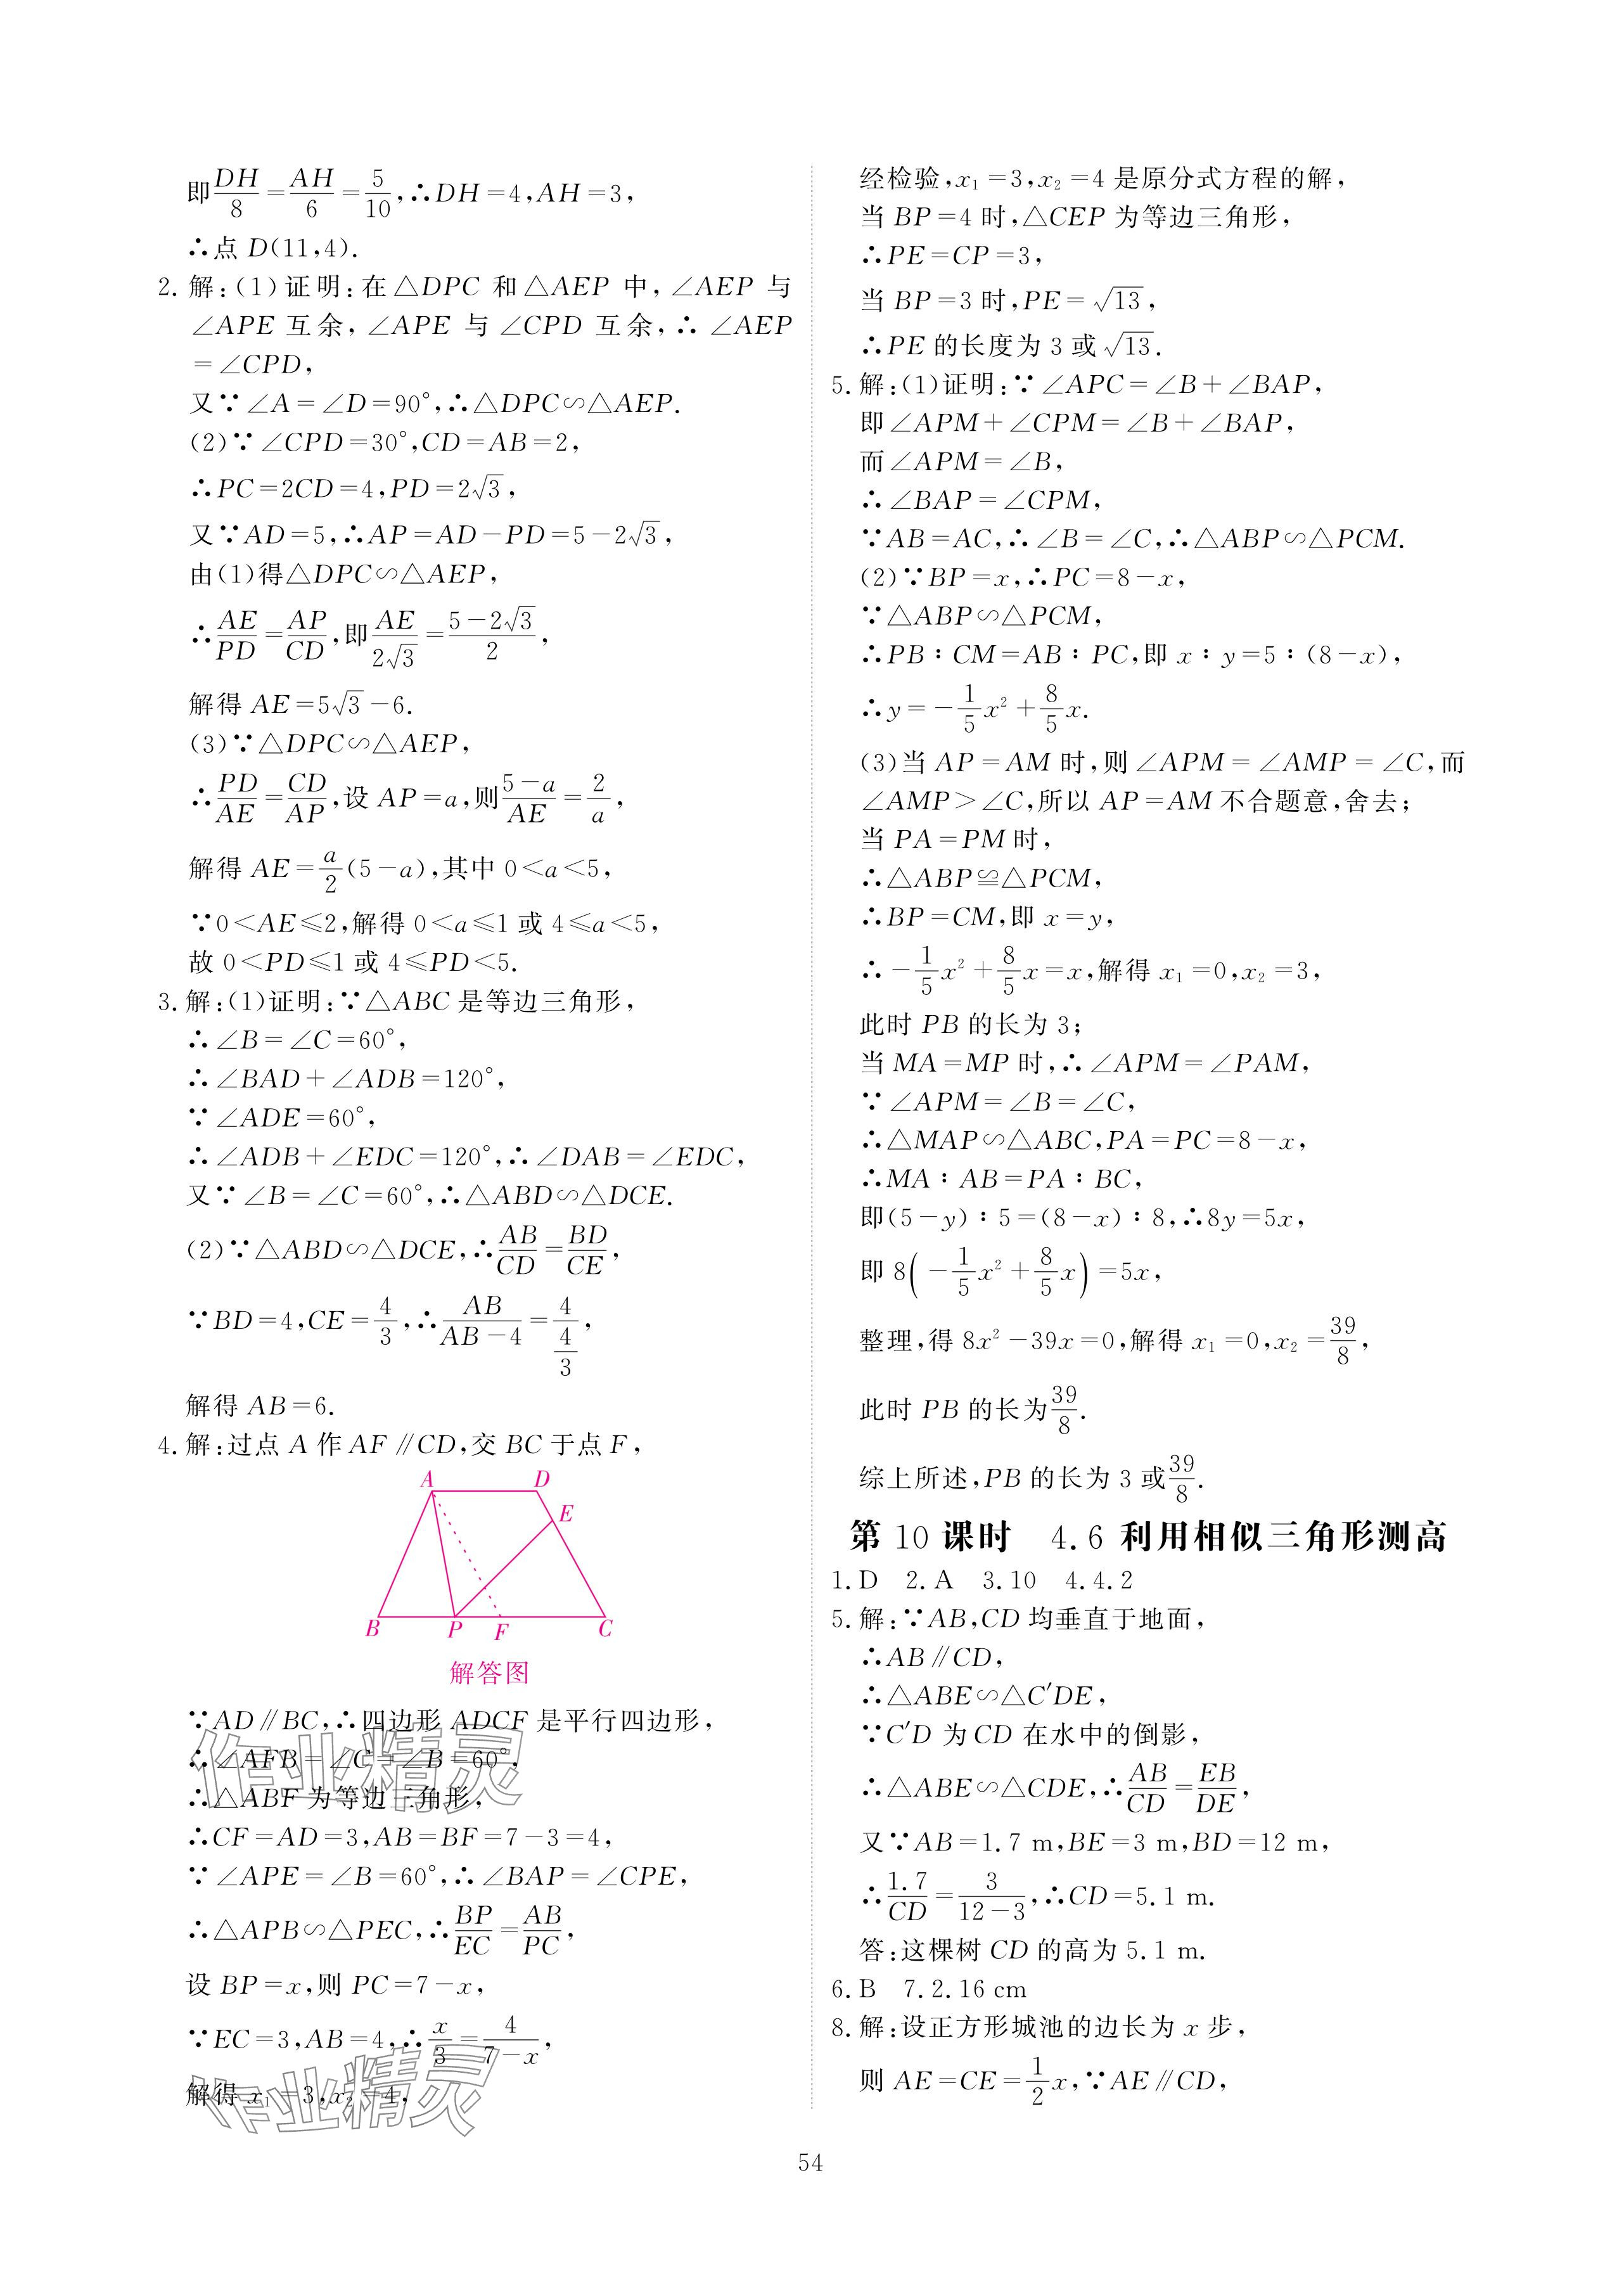 即DH/8=AH/6=5/10,∴DH=4,AH=3,
∴点 D(11,4).
2. 解:(1)证明:在△DPC 和△AEP 中,∠AEP 与
∠APE 互余,∠APE 与∠CPD 互余,∴∠AEP
=∠CPD,
又∵∠A=∠D=90°,∴△DPC∽△AEP.
(2)∵∠CPD=30°,CD=AB=2,
∴PC=2CD=4,PD=2√3,
又∵AD=5,∴AP=AD-PD=5-2√3,
由(1)得△DPC∽△AEP,
∴AE/PD=AP/CD,即AE/(2√3)=(5-2√3)/2,
解得 AE=5√3-6.
(3)∵△DPC∽△AEP,
∴PD/AE=CD/AP,设 AP=a,则(5-a)/AE=2/a,
解得 AE=a/2(5-a),其中 0<a<5,
∵0<AE≤2,解得 0<a≤1 或 4≤a<5,
故 0<PD≤1 或 4≤PD<5.
3. 解:(1)证明:∵△ABC 是等边三角形,
∴∠B=∠C=60°,
∴∠BAD+∠ADB=120°,
∵∠ADE=60°,
∴∠ADB+∠EDC=120°,∴∠DAB=∠EDC,
又∵∠B=∠C=60°,∴△ABD∽△DCE.
(2)∵△ABD∽△DCE,∴AB/CD=BD/CE,
∵BD=4,CE=4/3,∴AB/(AB-4)=4/(4/3),
解得 AB=6.
4. 解:过点 A 作 AF∥CD,交 BC 于点 F,
A D
E
B P F C
解答图
∵AD∥BC,∴四边形 ADCF 是平行四边形,
∴∠AFB=∠C=∠B=60°,
∴△ABF 为等边三角形,
∴CF=AD=3,AB=BF=7-3=4,
∵∠APE=∠B=60°,∴∠BAP=∠CPE,
∴△APB∽△PEC,∴BP/EC=AB/PC,
设 BP=x,则 PC=7-x,
∵EC=3,AB=4,∴x/3=4/(7-x),
解得 x₁=3,x₂=4,
作业精灵
作业精灵
经检验,x₁=3,x₂=4 是原分式方程的解,
当 BP=4 时,△CEP 为等边三角形,
∴PE=CP=3,
当 BP=3 时,PE=√13,
∴PE 的长度为 3 或√13.
5. 解:(1)证明:∵∠APC=∠B+∠BAP,
即∠APM+∠CPM=∠B+∠BAP,
而∠APM=∠B,
∴∠BAP=∠CPM,
∵AB=AC,∴∠B=∠C,∴△ABP∽△PCM.
(2)∵BP=x,∴PC=8-x,
∵△ABP∽△PCM,
∴PB∶CM=AB∶PC,即 x∶y=5∶(8-x),
∴y=-1/5x²+8/5x.
(3)当 AP=AM 时,则∠APM=∠AMP=∠C,而
∠AMP>∠C,所以 AP=AM 不合题意,舍去;
当 PA=PM 时,
∴△ABP≌△PCM,
∴BP=CM,即 x=y,
∴-1/5x²+8/5x=x,解得 x₁=0,x₂=3,
此时 PB 的长为 3;
当 MA=MP 时,∴∠APM=∠PAM,
∵∠APM=∠B=∠C,
∴△MAP∽△ABC,PA=PC=8-x,
∴MA∶AB=PA∶BC,
即(5-y)∶5=(8-x)∶8,∴8y=5x,
即 8(-1/5x²+8/5x)=5x,
整理,得 8x²-39x=0,解得 x₁=0,x₂=39/8,
此时 PB 的长为39/8.
综上所述,PB 的长为 3 或39/8.
第 10 课时 4.6 利用相似三角形测高
1. D 2. A 3. 10 4. 4.2
5. 解:∵AB,CD 均垂直于地面,
∴AB∥CD,
∴△ABE∽△C′DE,
∵C′D 为 CD 在水中的倒影,
∴△ABE∽△CDE,∴AB/CD=EB/DE,
又∵AB=1.7 m,BE=3 m,BD=12 m,
∴1.7/CD=3/(12-3),∴CD=5.1 m.
答:这棵树 CD 的高为 5.1 m.
6. B 7. 2.16 cm
8. 解:设正方形城池的边长为 x 步,
则 AE=CE=1/2x,∵AE∥CD,
54